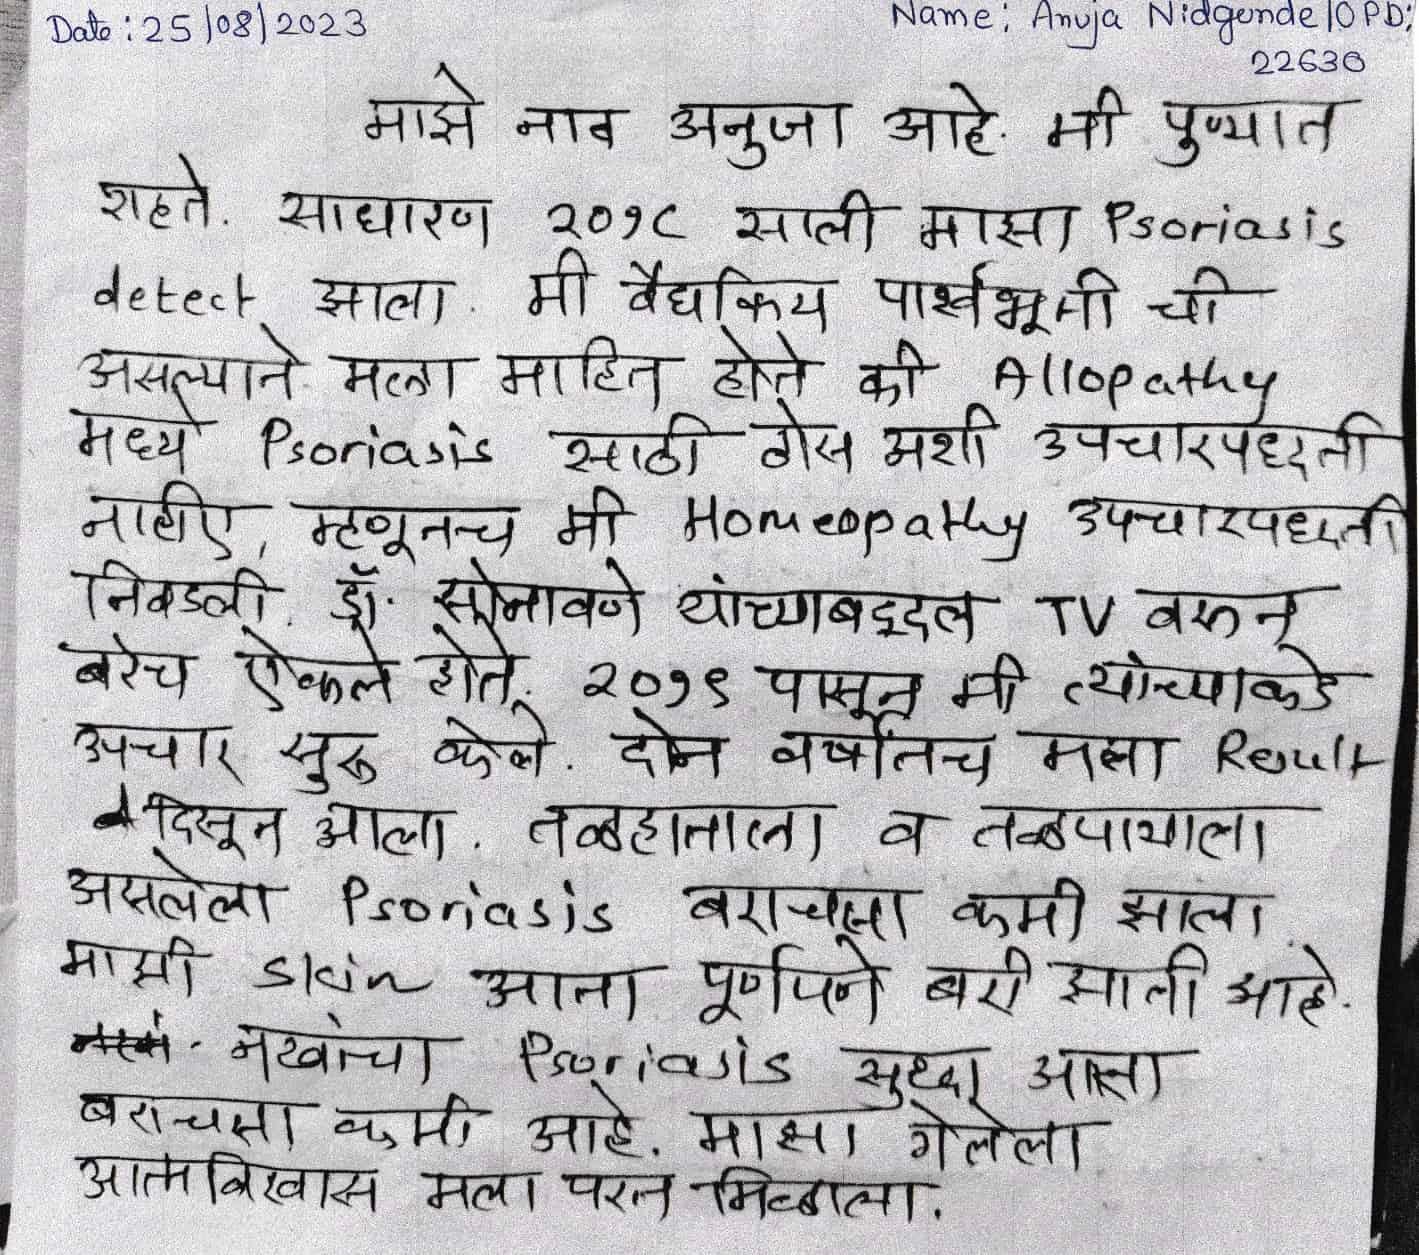 Date : 25/08/2023
Name : Anuja Nidgunde/OPD:
22630
माझे नाव अनुजा आहे. मी पुण्यात
राहते. साधारण २०१८ साली माझा Psoriasis
detect झाला. मी वैद्यकिय पार्श्वभूमी ची
असल्याने मला माहित होते की Allopathy
मध्ये Psoriasis साठी ठोस अशी उपचारपध्दती
नाहीए, म्हणूनच मी Homeopathy उपचारपध्दती
निवडली. डॉ. सोनावणे यांच्याबद्दल TV वरून
बरेच ऐकले होते. २०१९ पासून मी त्यांच्याकडे
उपचार सुरू केले. दोन वर्षातच मला Result
दिसून आला. तळहाताला व तळपायाला
असलेला Psoriasis बराचसा कमी झाला.
माझी skin आता पूर्णपने बरी झाली आहे.
नखांचा Psoriasis सुध्दा आता
बराचसा कमी आहे. माझा गेलेला
आत्मविश्वास मला परत मिळाला.